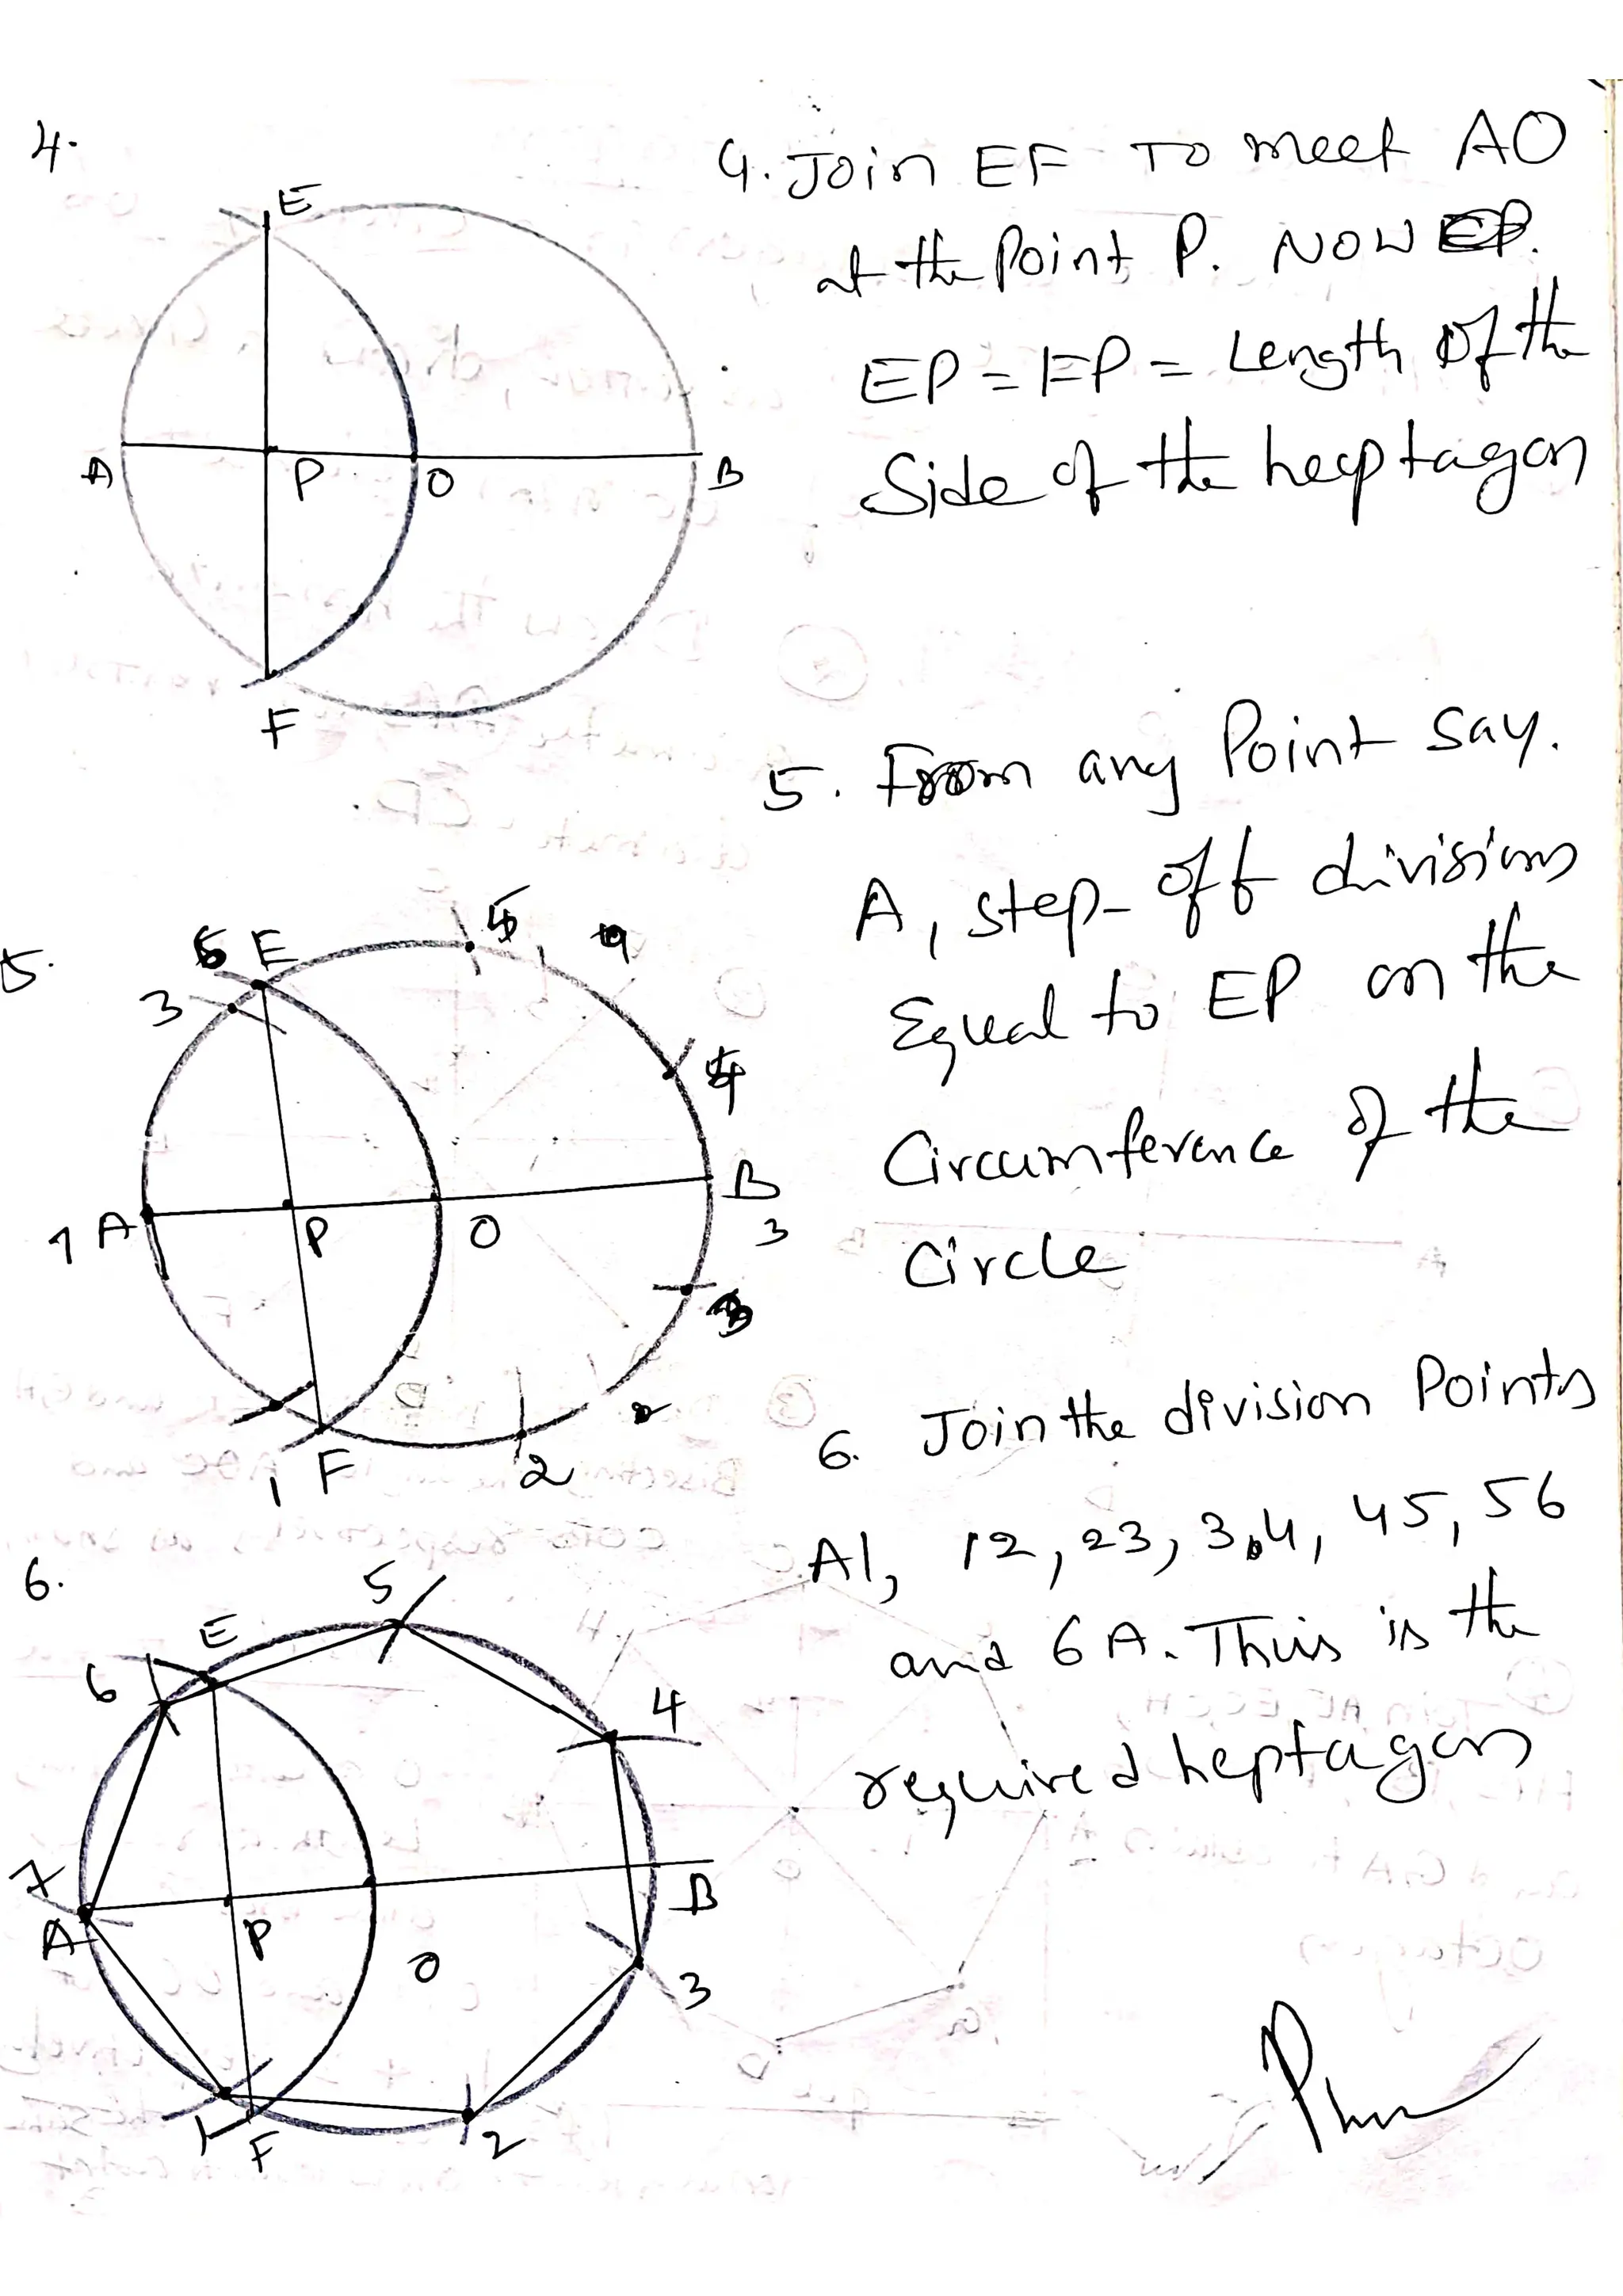 4.
4. Join EF TO meet AO
at the Point P. NOW
EP = FP = Length Of the
Side of the heptagon
E
A
P
O
B
F
5. From any Point say.
A, step-off divisions
Equal to EP on the
Circumference of the
Circle
5.
6 E
5
3
4
1 A
P
O
B
3
1 F
2
6. Join the division Points
A1, 12, 23, 3,4, 45, 56
and 6A. This is the
required heptagon
6.
5
E
6
4
7
A
P
O
B
3
1
F
2